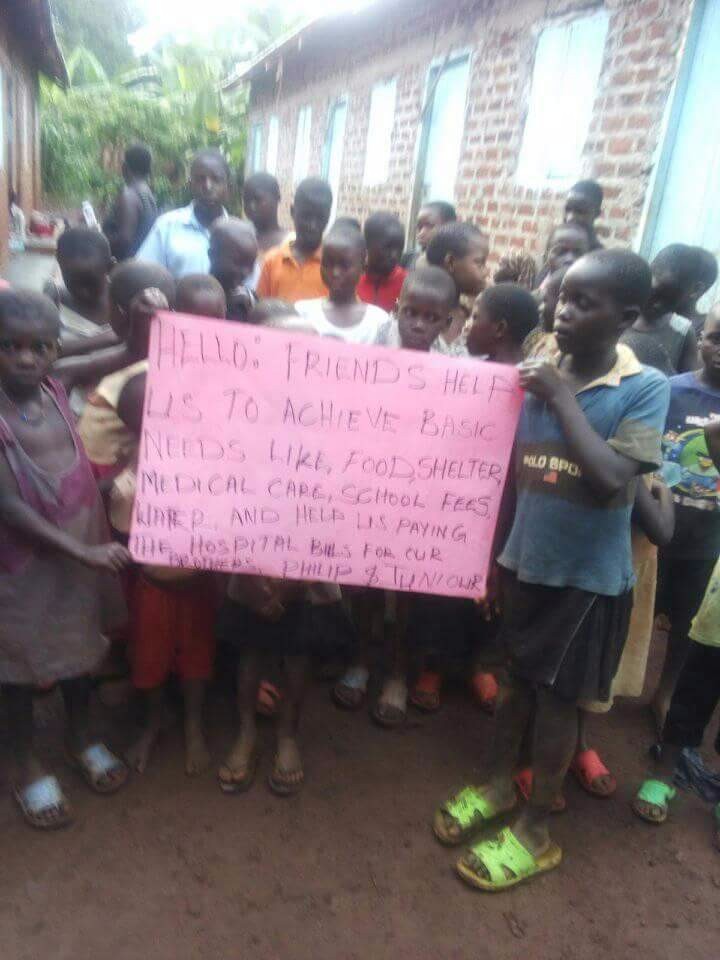 HELLO: FRIENDS HELP
US TO ACHIEVE BASIC
NEEDS LIKE, FOOD, SHELTER,
MEDICAL CARE, SCHOOL FEES,
WATER, AND HELP US PAYING
THE HOSPITAL BILLS FOR OUR
BROTHERS, PHILIP & JUNIOUR
POLO SPO